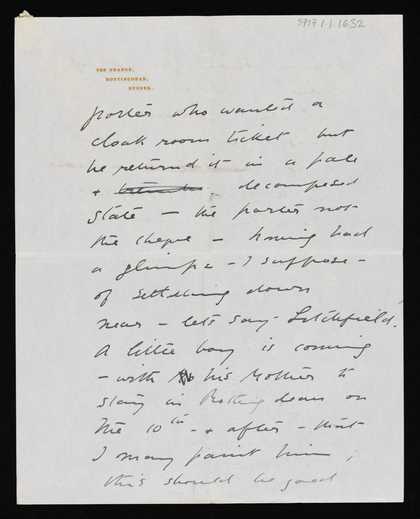 8717/1/1632
THE GRANGE,
ROTTINGDEAN,
SUSSEX.
porter who wanted a
cloak room ticket but
he returned it in a pale
+ decomposed
state – the porter not
the cheque – having had
a glimpse – I suppose –
of settling down
near – lets say – Litchfield.
A little boy is coming
– with his Mother to
stay in Rottingdean on
the 10th – + after – that
I may paint him ;
this should be good